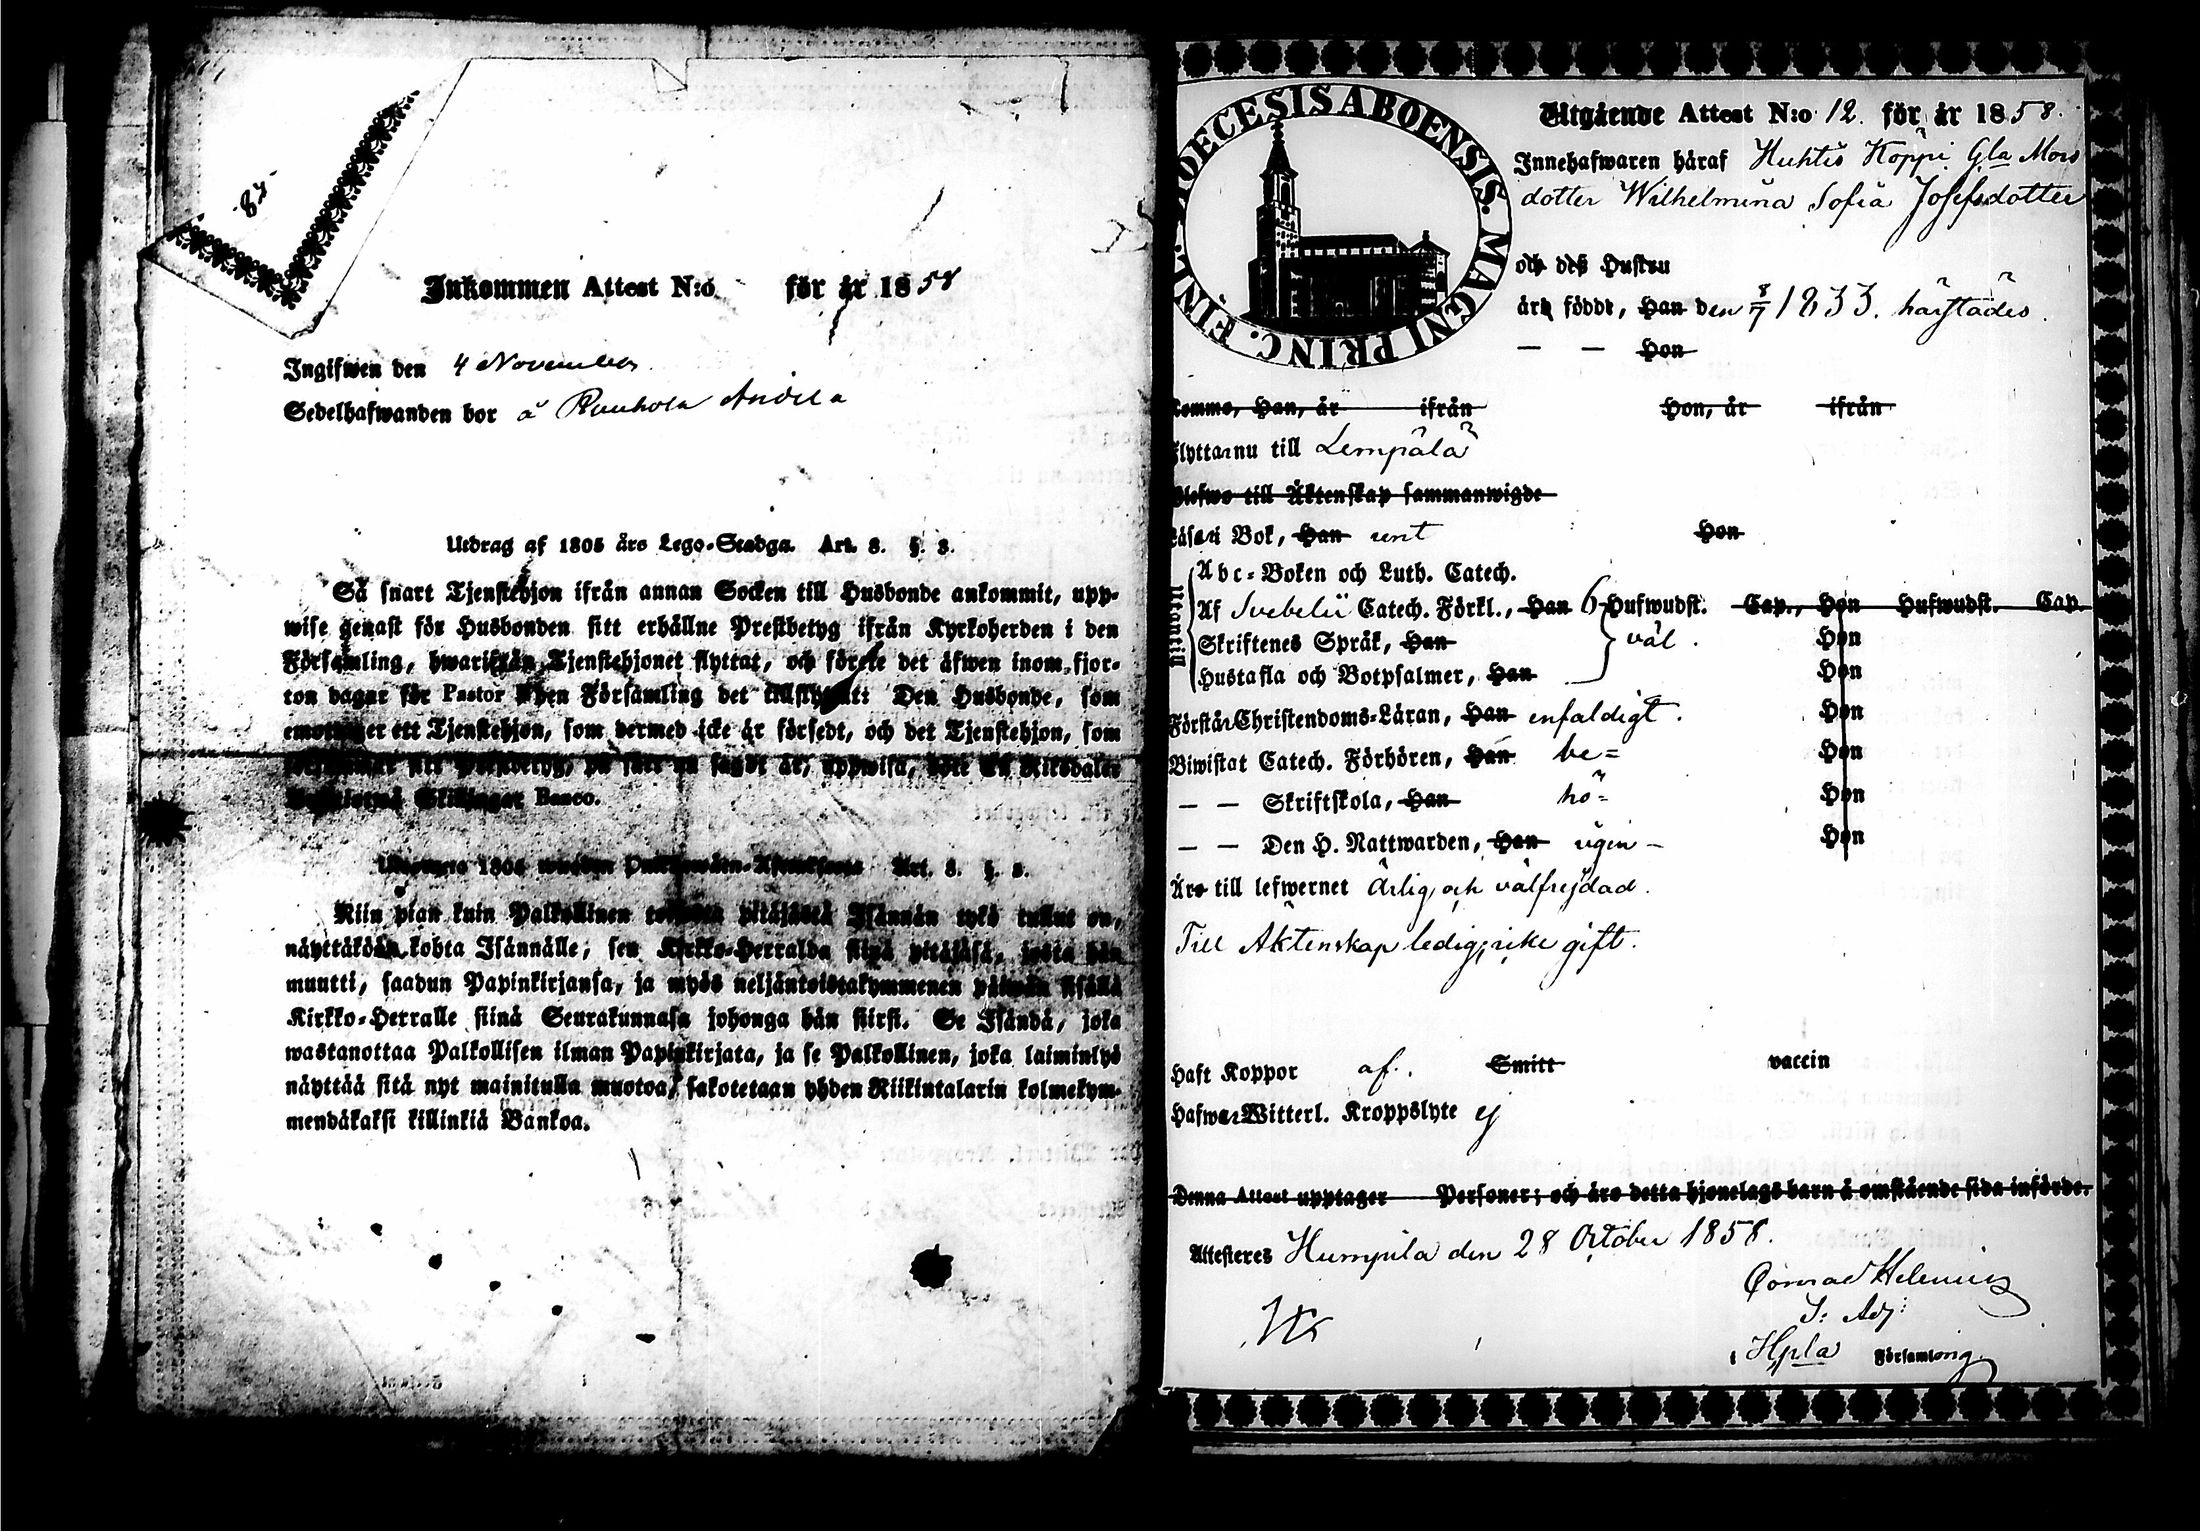 84.
Inkommen Attest N:o för år 1858
Ingifwen den 4 November
Sedelhafwanden bor å Ruuhola Andila
Utdrag af 1805 års Lego-Stadga. Art. 8. §. 3.
Så snart Tjenstehjon ifrån annan Socken till Husbonde ankommit, upp-
wise genast för Husbonden sitt erhållne Prestbetyg ifrån Kyrkoherden i den
Församling, hwarifrån Tjenstehjonet flyttat, och förete det äfwen inom fjor-
ton dagar för Pastor i den Församling det tillflyttat: Den Husbonde, som
emottager ett Tjenstehjon, som dermed icke är försedt, och det Tjenstehjon, som
sitt Prestbetyg, på sätt nu sagdt är, uppwisa, böte En Riksdaler
Skillingar Banco.
1805 wuoden Art. 8. §. 3.
Niin pian kuin Palkollinen toisesta pitäjästä Isännän tykö tullut on,
näyttäköön kohta Isännälle, sen Kirkko-Herralda siinä pitäjäsä, josta hän
muutti, saadun Papinkirjansa, ja myös neljäntoistakymmenen päiwän sisällä
Kirkko-Herralle siinä Seurakunnasa johonga hän siirsi. Se Isändä, joka
wastanottaa Palkollisen ilman Papinkirjata, ja se Palkollinen, joka laiminlyö
näyttää sitä nyt mainitulla muotoa, sakotetaan yhden Riikintalarin kolmekym-
mendäkaksi killinkiä Bankoa.
DIOECESIS ABOENSIS. MAGNI PRINC. FINL.
Utgående Attest N:o 12. för år 1858.
Innehafwaren häraf Huhtis Koppi Gla Mors
dotter Wilhelmina Sofia Josefsdotter
och deß Hustru
är född, Han den 8/7 1833. härstädes.
— — Hon
Komme, Han, år ifrån Hon, år ifrån
Flyttar nu till Lempälä
Blefwo till Äktenskap sammanwigde
Läser i Bok, Han rent Hon
Utantill
Abc-Boken och Luth. Catech.
Af Svebelii Catech. Förkl., Han 6 Hufwudst. Cap., Hon Hufwudst. Cap.
Skriftenes Språk, Han väl. Hon
Hustafla och Botpsalmer, Han Hon
Förstår Christendoms-Läran, Han enfaldigt. Hon
Biwistat Catech. Förhören, Han be= Hon
— — Skriftskola, Han hö= Hon
— — Den H. Nattwarden, Han rigen — Hon
Äro till lefwernet ärlig och välfrejdad.
Till Äktenskap ledig, icke gift.
Haft Koppor af. Smitt vaccin
Hafwer Witterl. Kroppslyte ej
Denna Attest upptager Personer; och äro detta hjonelags barn å omstående sida införde.
Attesteres Humpila den 28 October 1858.
Conrad Helenius
S: Adj:
i Hpla Församling.